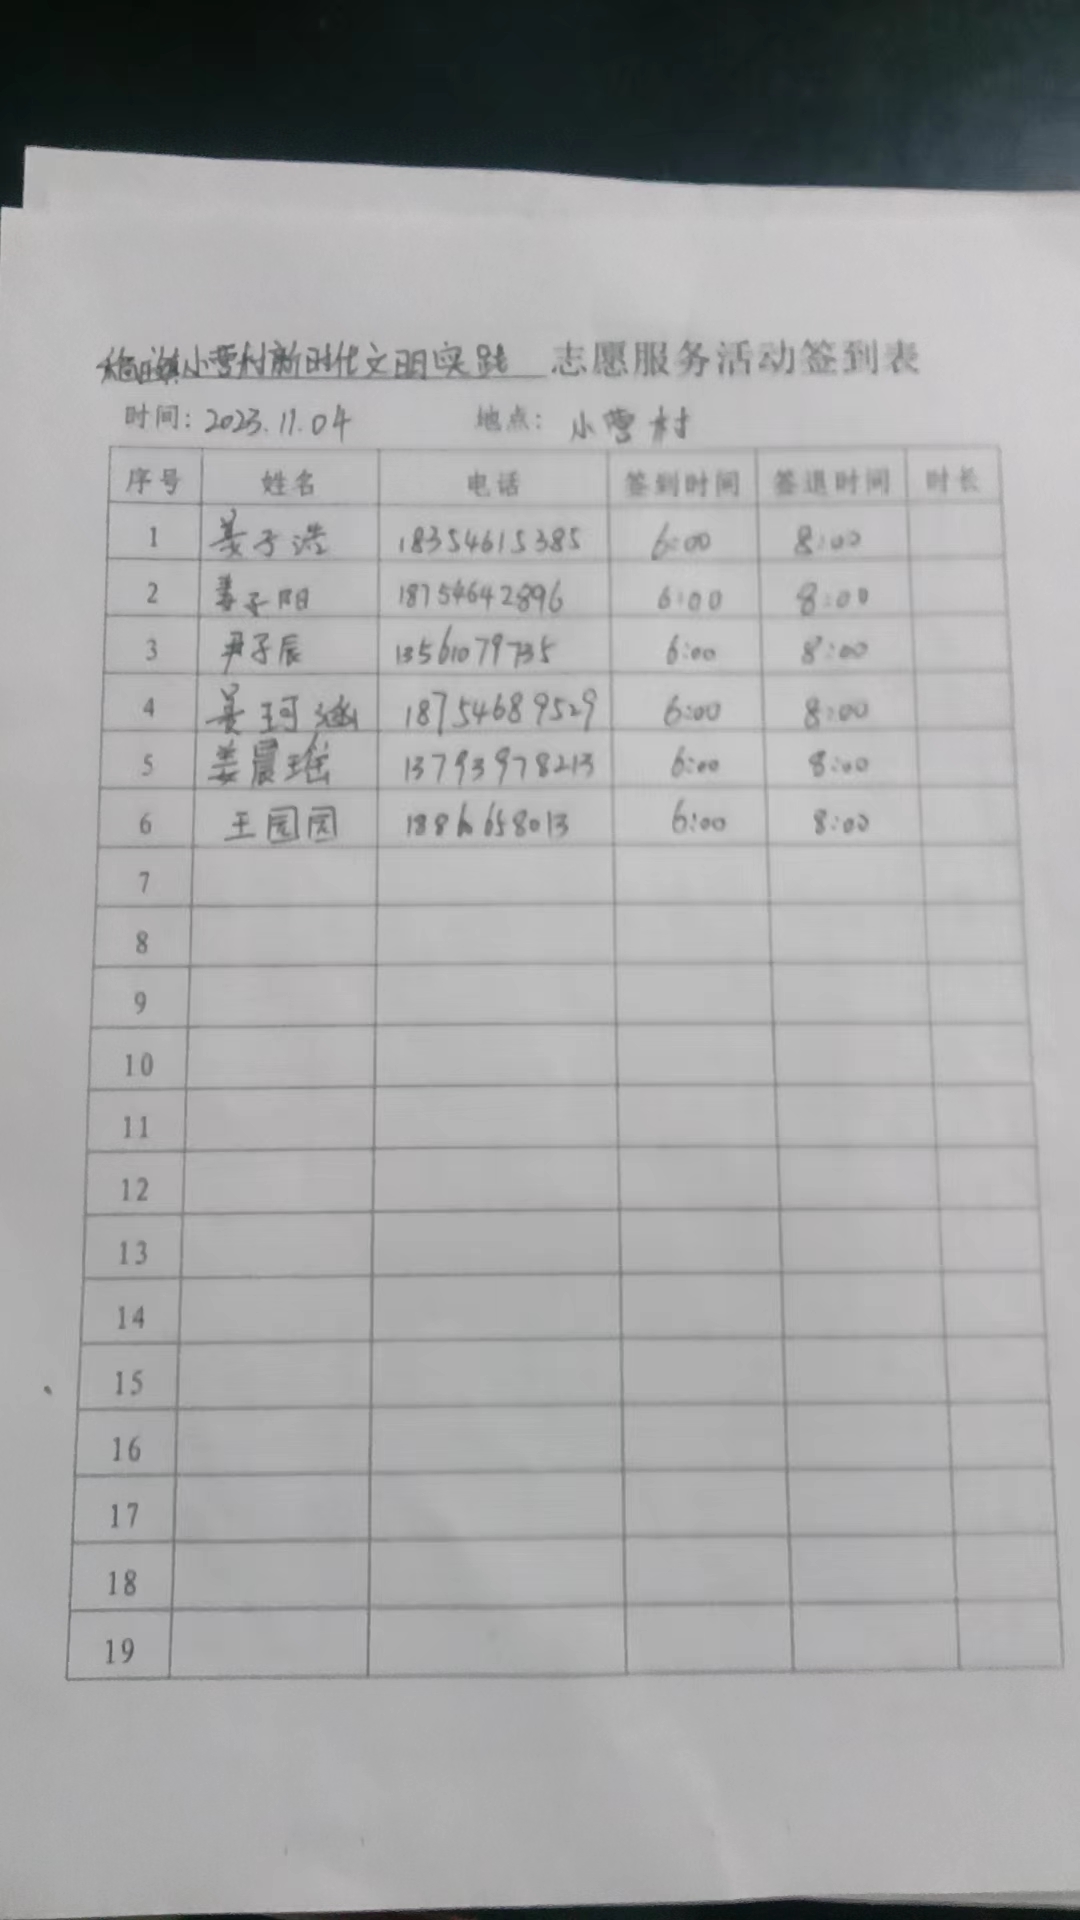 小营村新时代文明实践 志愿服务活动签到表
时间: 2023.11.04 地点: 小营村
序号 姓名 电话 签到时间 签退时间 时长
1 姜子浩 18354615385 6:00 8:00
2 姜子阳 18754642896 6:00 8:00
3 尹子辰 13561079735 6:00 8:00
4 姜珂涵 18754689529 6:00 8:00
5 姜晨瑶 13793978213 6:00 8:00
6 王园园 6:00 8:00
7
8
9
10
11
12
13
14
15
16
17
18
19